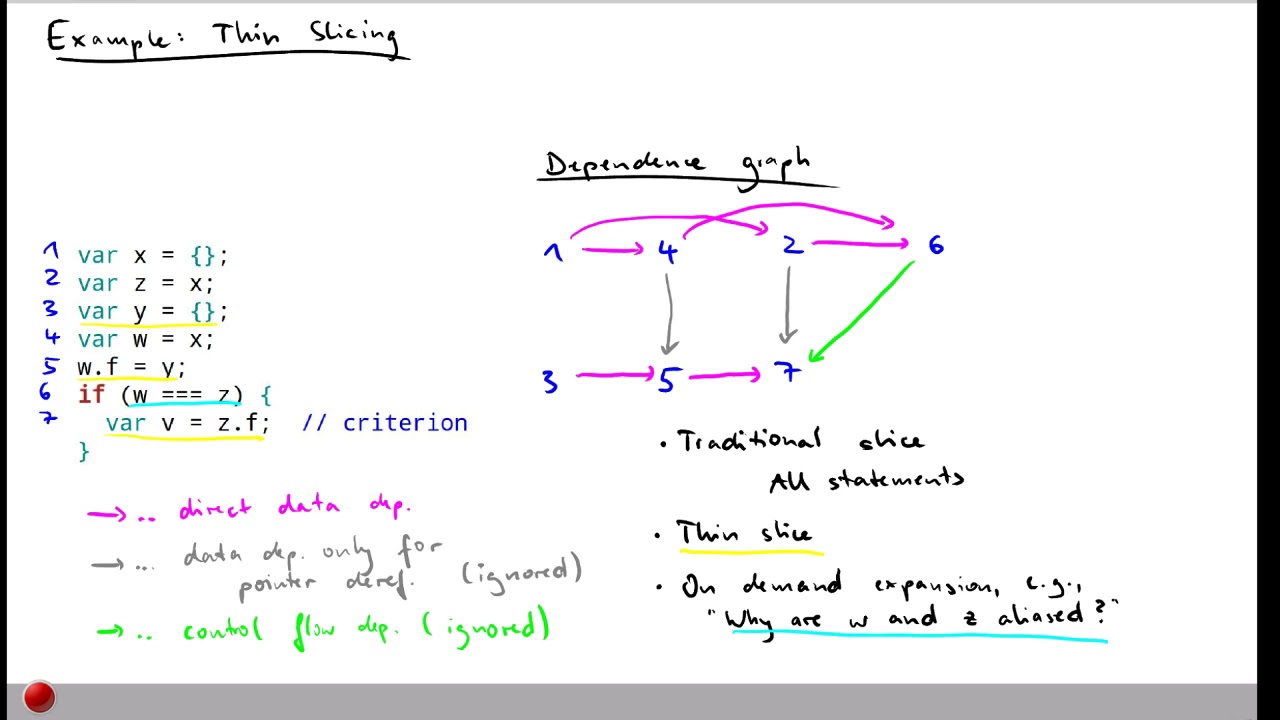 Example: Thin Slicing
Dependence graph
1 4 2 6
3 5 7
1 var x = {};
2 var z = x;
3 var y = {};
4 var w = x;
5 w.f = y;
6 if (w === z) {
7 var v = z.f; // criterion
}
→ .. direct data dep.
→ ... data dep. only for
pointer deref. (ignored)
→ .. control flow dep. (ignored)
• Traditional slice
All statements
• Thin slice
• On demand expansion, e.g.,
"Why are w and z aliased?"